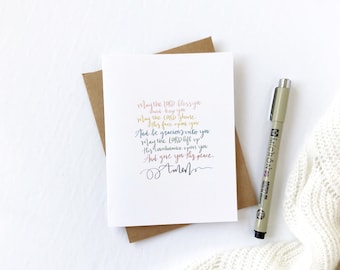 May the LORD bless you
and keep you
May the LORD shine
His face upon you
And be gracious unto you
May the LORD lift up
His countenance upon you
And give you His peace.
Amen